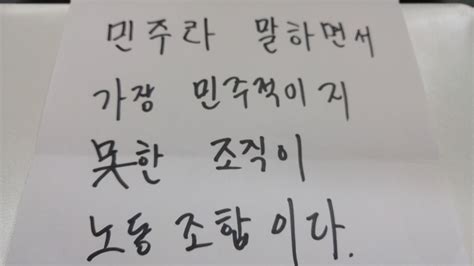 민주라 말하면서
가장 민주적이지
못한 조직이
노동 조합이다.